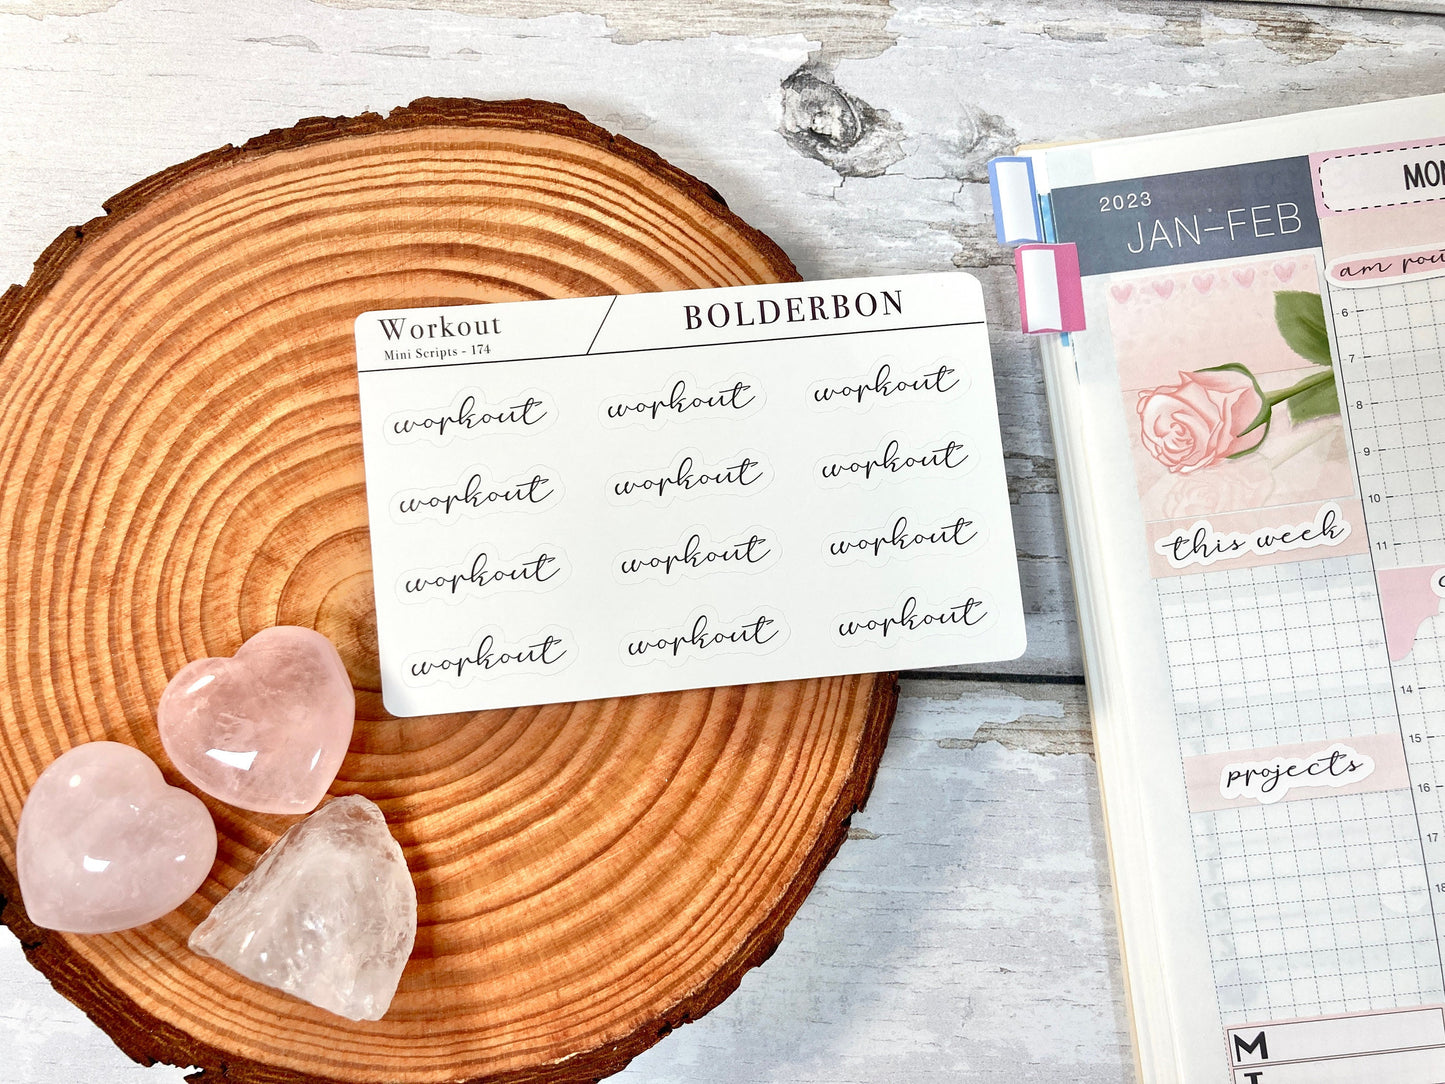 Workout
Mini Scripts - 174
BOLDERBON
workout workout workout
workout workout workout
workout workout workout
workout workout workout
2023
JAN-FEB
this week
projects
M
am
6
7
8
9
10
11
14
15
16
18